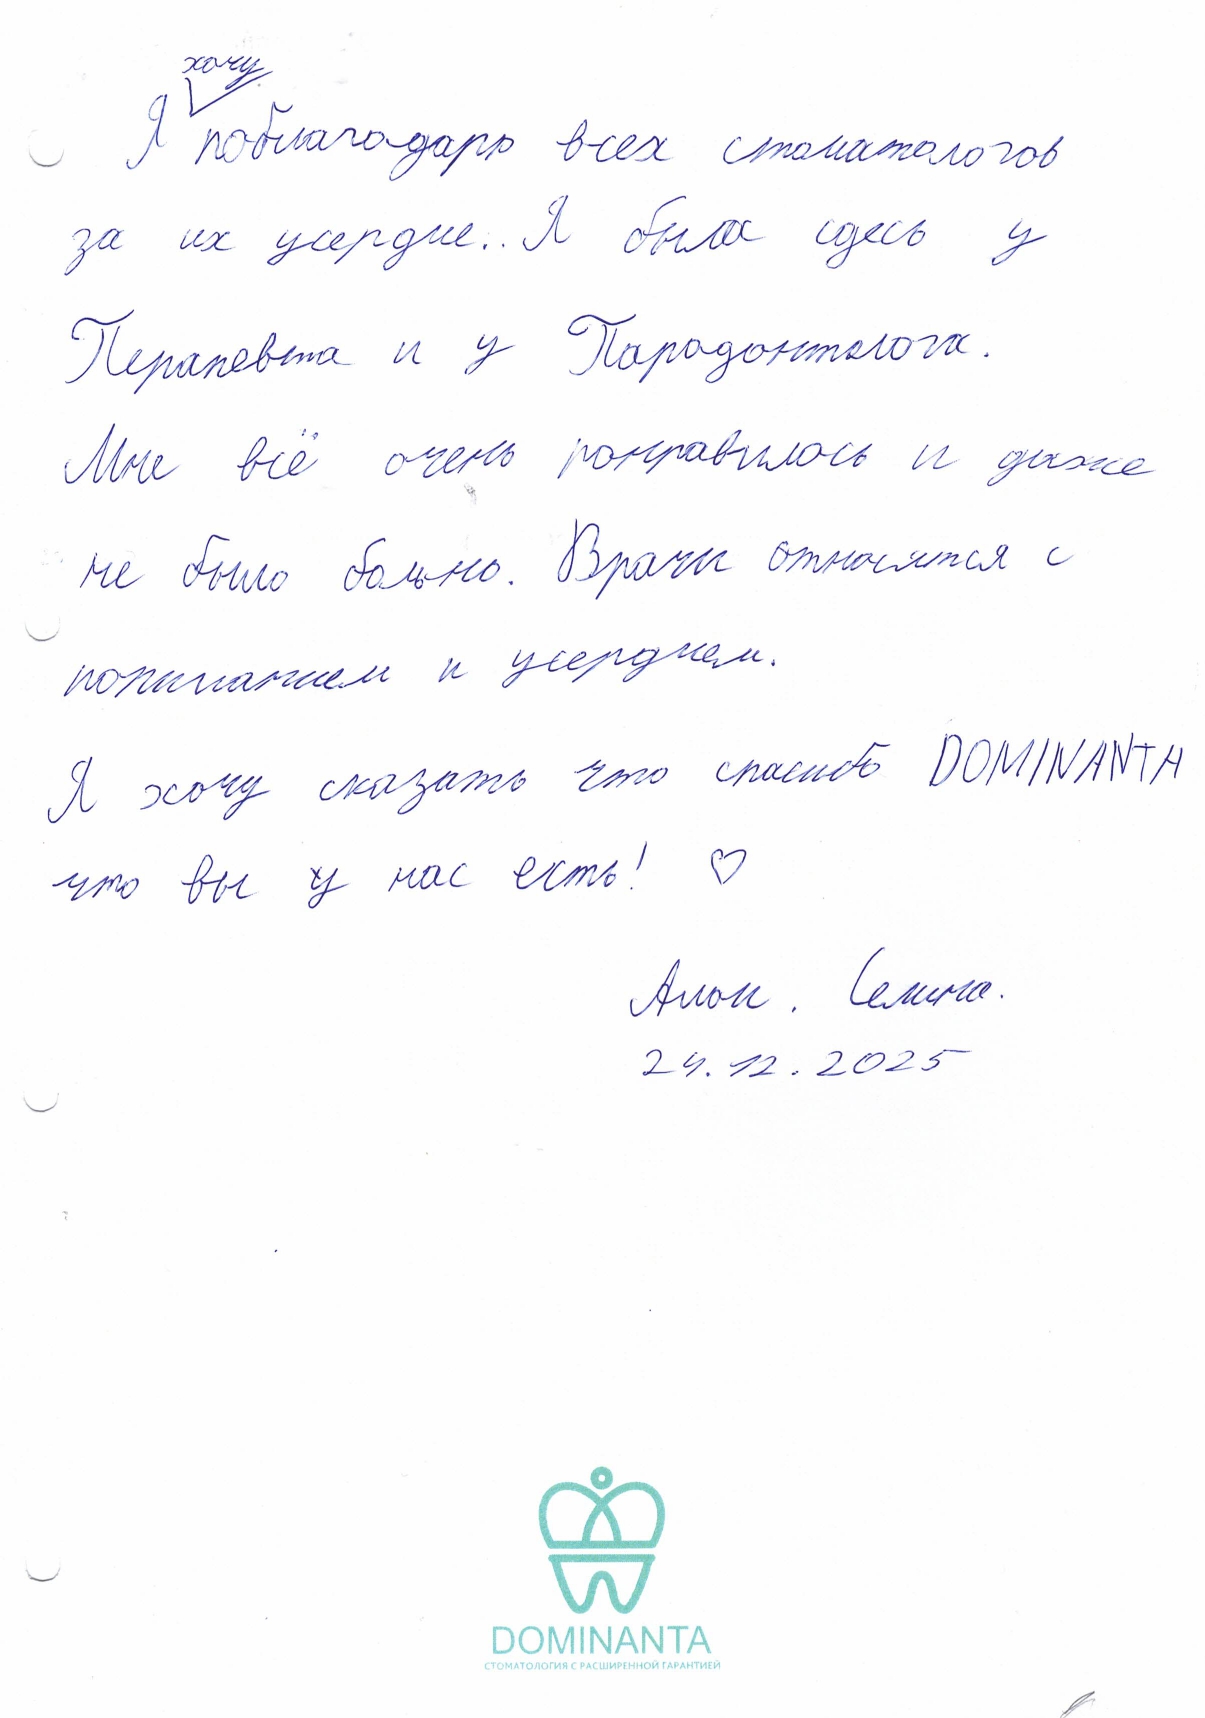 хочу
Я поблагодарю всех стоматологов
за их усердие.. Я была здесь у
Терапевта и у Пародонтолога.
Мне всё очень понравилось и даже
не было больно. Врачи относятся с
пониманием и усердием.
Я хочу сказать что спасибо DOMINANTA
что вы у нас есть! ♡
Селина.
24.12.2025
DOMINANTA
СТОМАТОЛОГИЯ С РАСШИРЕННОЙ ГАРАНТИЕЙ